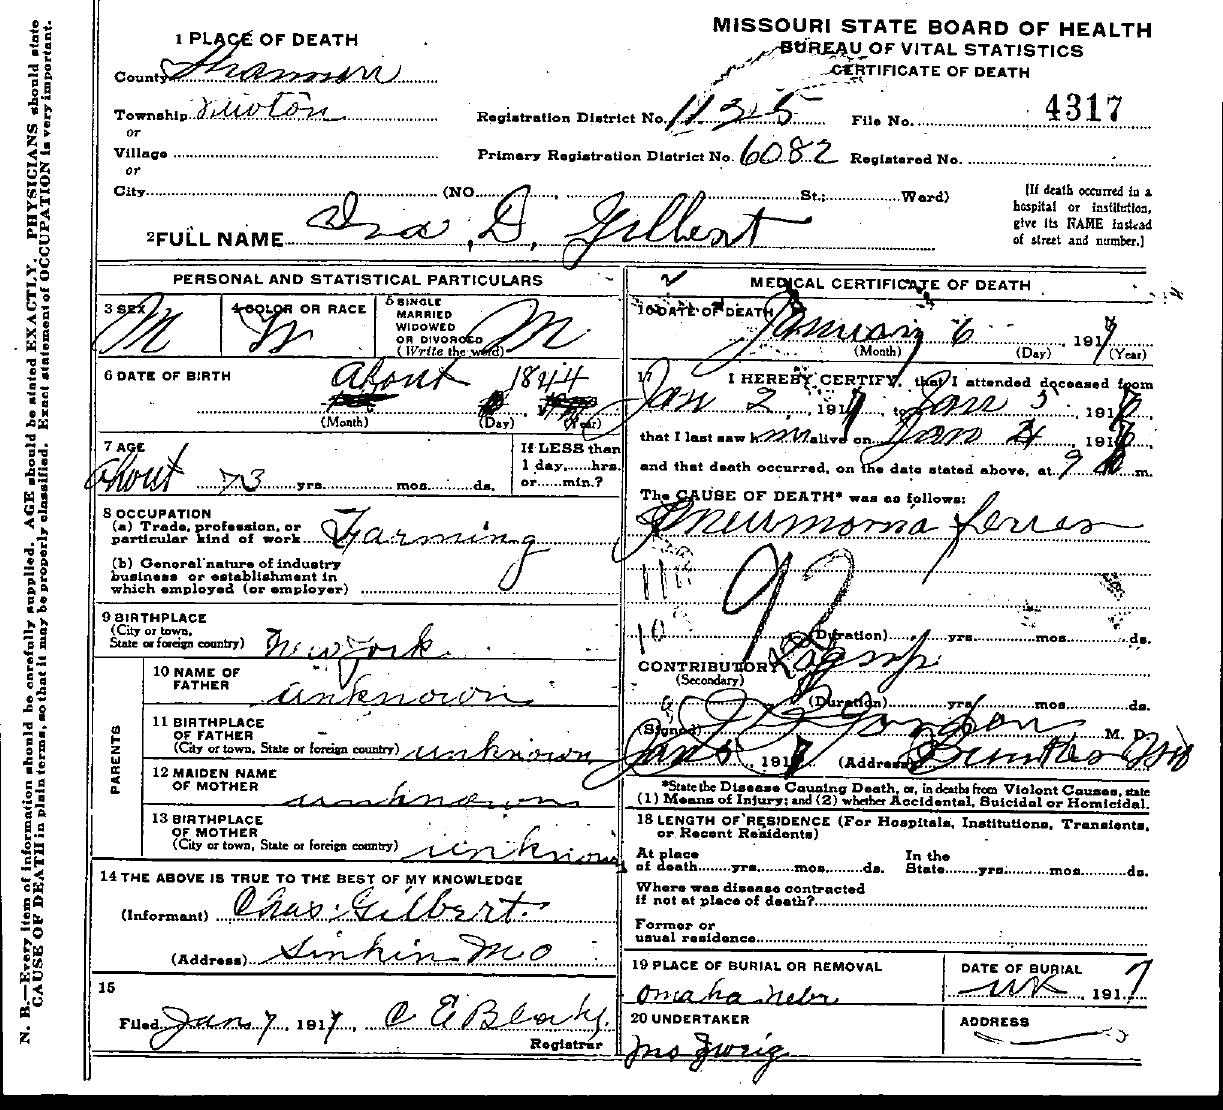 MISSOURI STATE BOARD OF HEALTH
BUREAU OF VITAL STATISTICS
CERTIFICATE OF DEATH
1 PLACE OF DEATH
County Shannon
Township Newton
or
Village
or
City (NO. St.; Ward)
Registration District No. 1125 File No. 4317
Primary Registration District No. 6082 Registered No.
[If death occurred in a
hospital or institution,
give its NAME instead
of street and number.]
2 FULL NAME Ira, D, Gilbert
PERSONAL AND STATISTICAL PARTICULARS
3 SEX M
4 COLOR OR RACE W
5 SINGLE
MARRIED
WIDOWED
OR DIVORCED
(Write the word) M
6 DATE OF BIRTH about 1844
(Month) (Day) (Year)
7 AGE about 73 yrs. mos. ds.
If LESS than
1 day, hrs.
or min.?
8 OCCUPATION
(a) Trade, profession, or
particular kind of work Farming
(b) General nature of industry
business or establishment in
which employed (or employer)
9 BIRTHPLACE
(City or town,
State or foreign country) New York
PARENTS
10 NAME OF
FATHER unknown
11 BIRTHPLACE
OF FATHER
(City or town, State or foreign country) unknown
12 MAIDEN NAME
OF MOTHER unknown
13 BIRTHPLACE
OF MOTHER
(City or town, State or foreign country) unknown
14 THE ABOVE IS TRUE TO THE BEST OF MY KNOWLEDGE
(Informant) Chas. Gilbert.
(Address) Sinkin MO
15
Filed Jan 7, 1917, C E
Registrar
MEDICAL CERTIFICATE OF DEATH
16 DATE OF DEATH January 6, 1917
(Month) (Day) (Year)
17 I HEREBY CERTIFY, that I attended deceased from
Jan 2, 1917, to Jan 5, 1917
that I last saw him alive on Jan 4, 1917
and that death occurred, on the date stated above, at 9 m.
The CAUSE OF DEATH* was as follows:
Pneumonia
92
(Duration) yrs. mos. ds.
CONTRIBUTORY Lagrip
(Secondary)
(Duration) yrs. mos. ds.
(Signed) Gordon M. D.
Jan 1917 (Address)
*State the Disease Causing Death, or, in deaths from Violent Causes, state
(1) Means of Injury; and (2) whether Accidental, Suicidal or Homicidal.
18 LENGTH OF RESIDENCE (For Hospitals, Institutions, Transients,
or Recent Residents)
At place
of death yrs. mos. ds.
In the
State yrs. mos. ds.
Where was disease contracted
if not at place of death?
Former or
usual residence
19 PLACE OF BURIAL OR REMOVAL
Omaha Nebr
DATE OF BURIAL
UK, 1917
20 UNDERTAKER
Jno Zweig
ADDRESS
N. B.—Every item of information should be carefully supplied. AGE should be stated EXACTLY. PHYSICIANS should state
CAUSE OF DEATH in plain terms, so that it may be properly classified. Exact statement of OCCUPATION is very important.